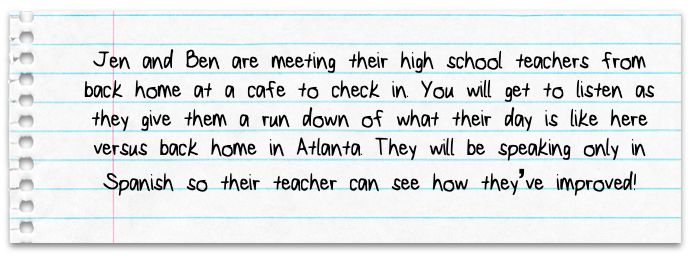 Jen and Ben are meeting their high school teachers from
back home at a cafe to check in. You will get to listen as
they give them a run down of what their day is like here
versus back home in Atlanta. They will be speaking only in
Spanish so their teacher can see how they've improved!